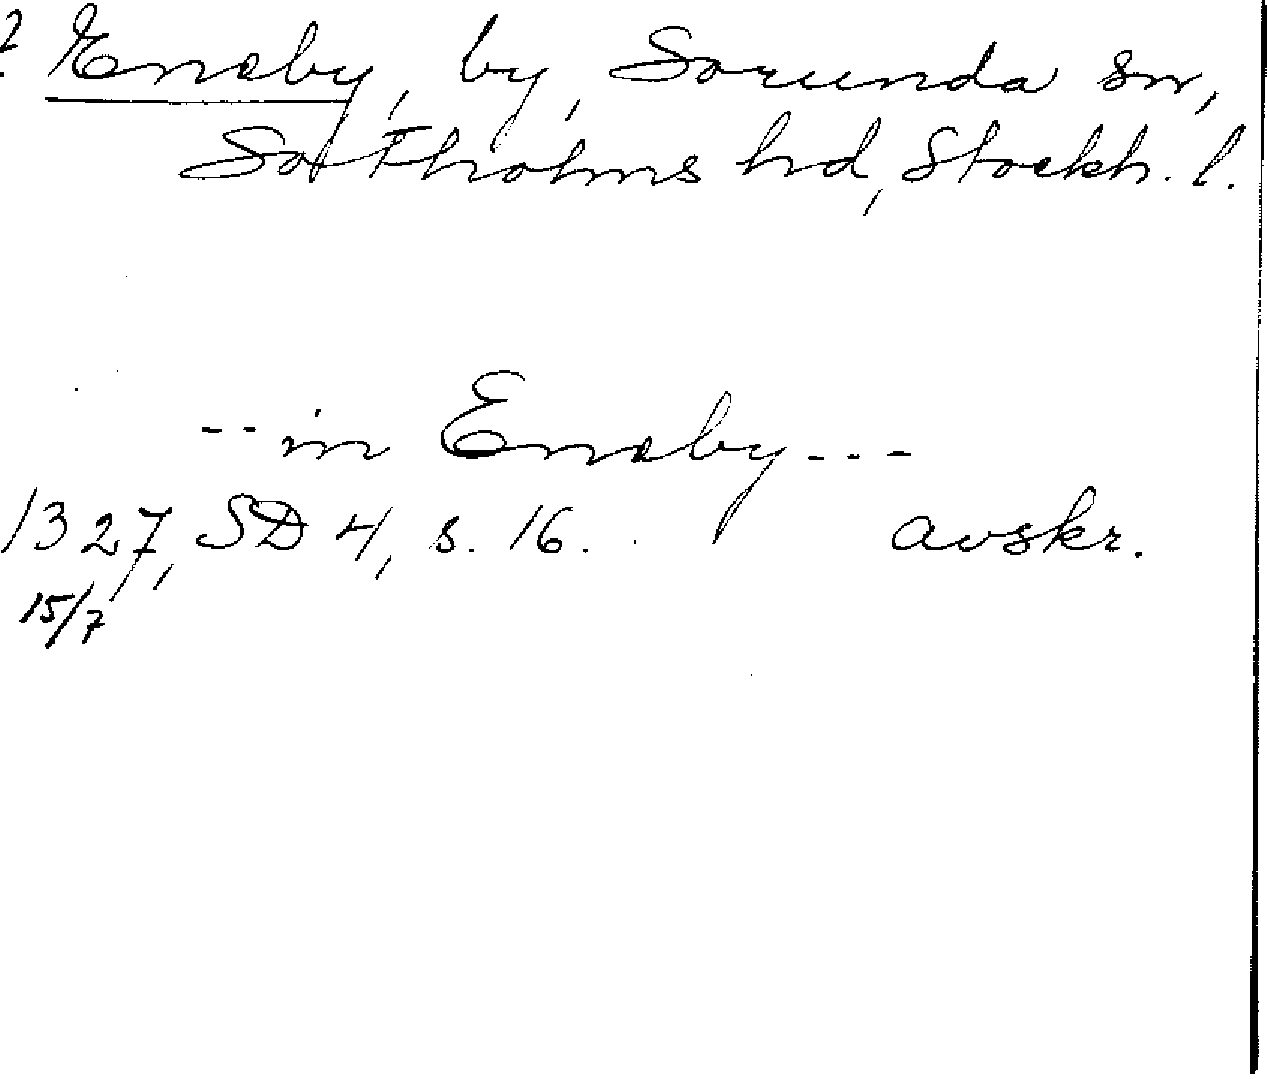 ? Eneby, by, Sorunda sn,
Sotholms hd, Stockh. l.
-- in Eneby ---
1327, SD 4, s. 16. avskr.
15/7